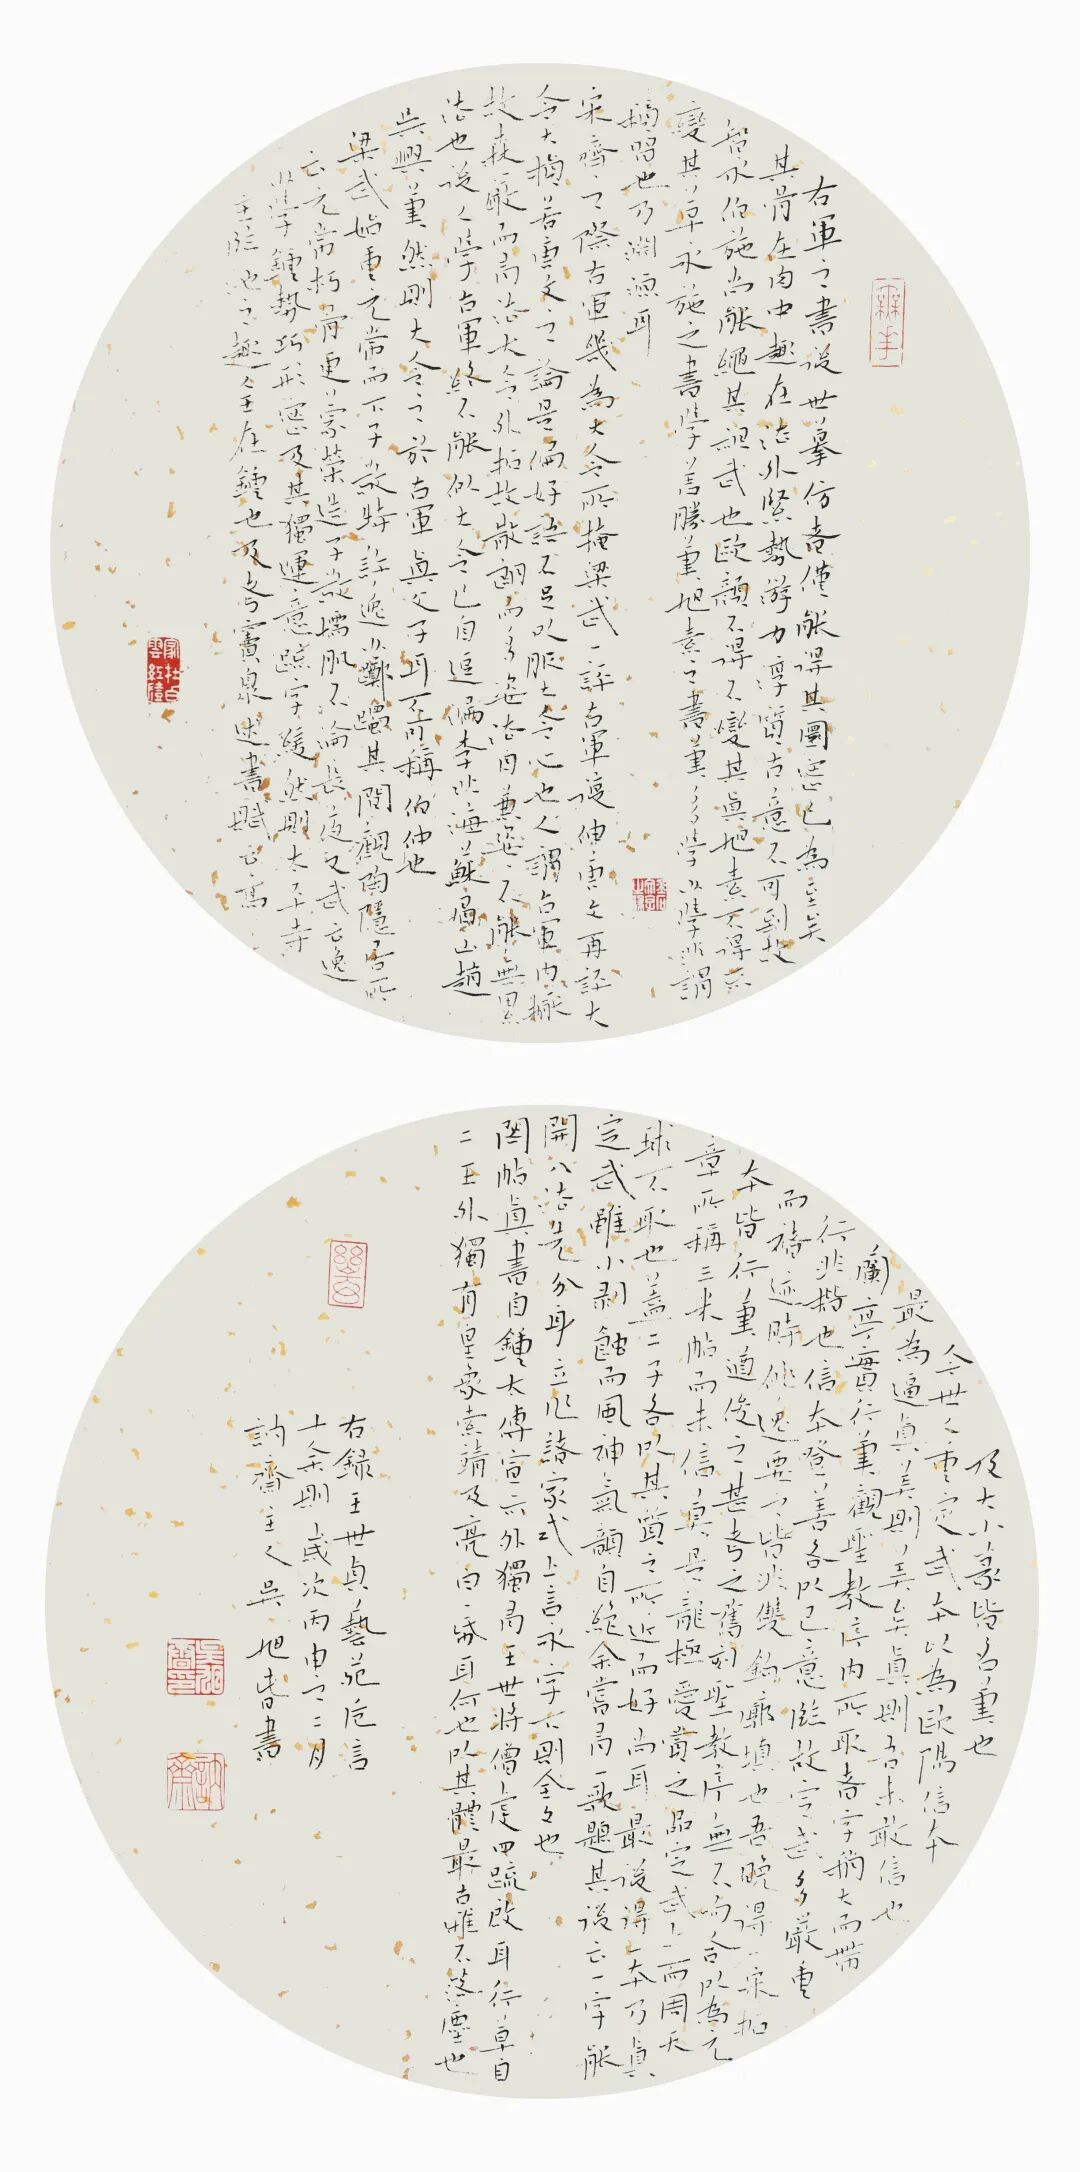 右軍之書後世摹仿者僅能得其圓密已為至矣
其骨在肉中趣在法外緊勢游力淳質古意不可到故
智永伯施尚能繩其祖武也歐顏不得不變其真旭素不得不
變其草永施之書學差勝筆旭素之書筆多學少學非謂
積習也乃淵源耳
宋齊之際右軍幾為大令所掩梁武一評右軍復伸唐文再評大
令大損若唐文之論是偏好語不足以服大令心也人謂右軍内擫
故森嚴而有法大令外拓故散朗而多姿法自兼姿不能無累
法也後人學右軍終不能似大令已自逗漏李北海蘇眉山趙
吳興筆然則大令之於右軍真父子耳不可稱伯仲也
梁武始重元常而下子敬特許逸少躑躅其間觀陶隱居所
云元常朽骨更蒙榮造子敬懦肌不淪長夜又武云逸
少學鍾勢巧形密及其獨運意疏字緩然則太平寺
主臨池之趣全在鍾也及考竇臮述書賦云嵩
及大小篆皆名筆也
今世人重定武本以為歐陽信本
最為逼真美則美矣真則吾未敢信也
蘭亭實行筆觀聖教序内所取者字稍大而帶
行非楷也信本登善各以己意臨故定武多嚴重
而褚迹時佻逸要之皆非雙鉤廓填也吾晚得一宋拓
本皆行筆遒俊之甚考之舊刻聖教序無不吻合以為元
章所稱三米帖而未信莫是龍極愛賞之品定武上而周天
球不取也蓋二子各以其質之所近而好尚耳最後得一本乃真
定武雖小剥蝕而風神氣韻自絕余嘗有一歌題其後云一字能
開八法先分身立作諸家式上言永字下則全文也
閣帖真書自鍾太傅宣示外獨有王世將僧虔四疏啟耳行草自
二王外獨有皇象索靖及亮白一紙耳何也以其體最古雅不落塵也
右錄王世貞藝苑卮言
十餘則歲次丙申之二月
訥齋主人吳旭春書